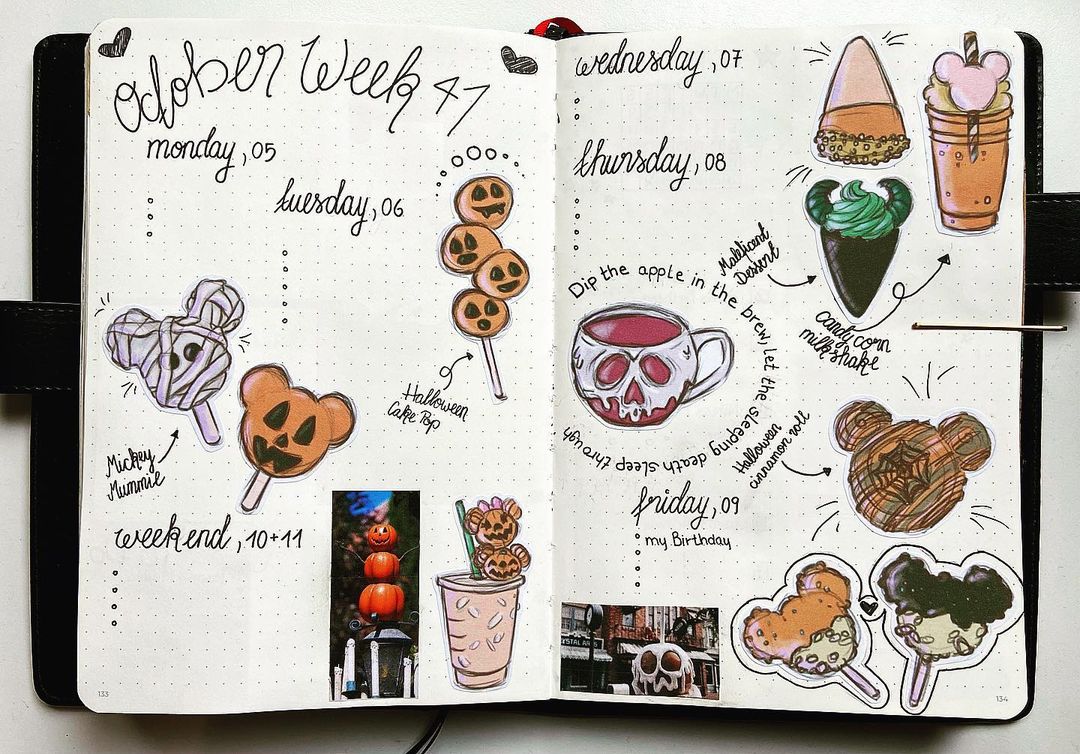 October Week 41
monday, 05
tuesday, 06
Halloween
Cake Pop
Mickey
Mummie
weekend, 10+11
133
wednesday, 07
thursday, 08
Maleficent
Dessert
candy corn
milkshake
Dip the apple in the brew, let the sleeping death sleep through
Halloween
cinnamon roll
friday, 09
my Birthday
CRYSTAL ARTS
134